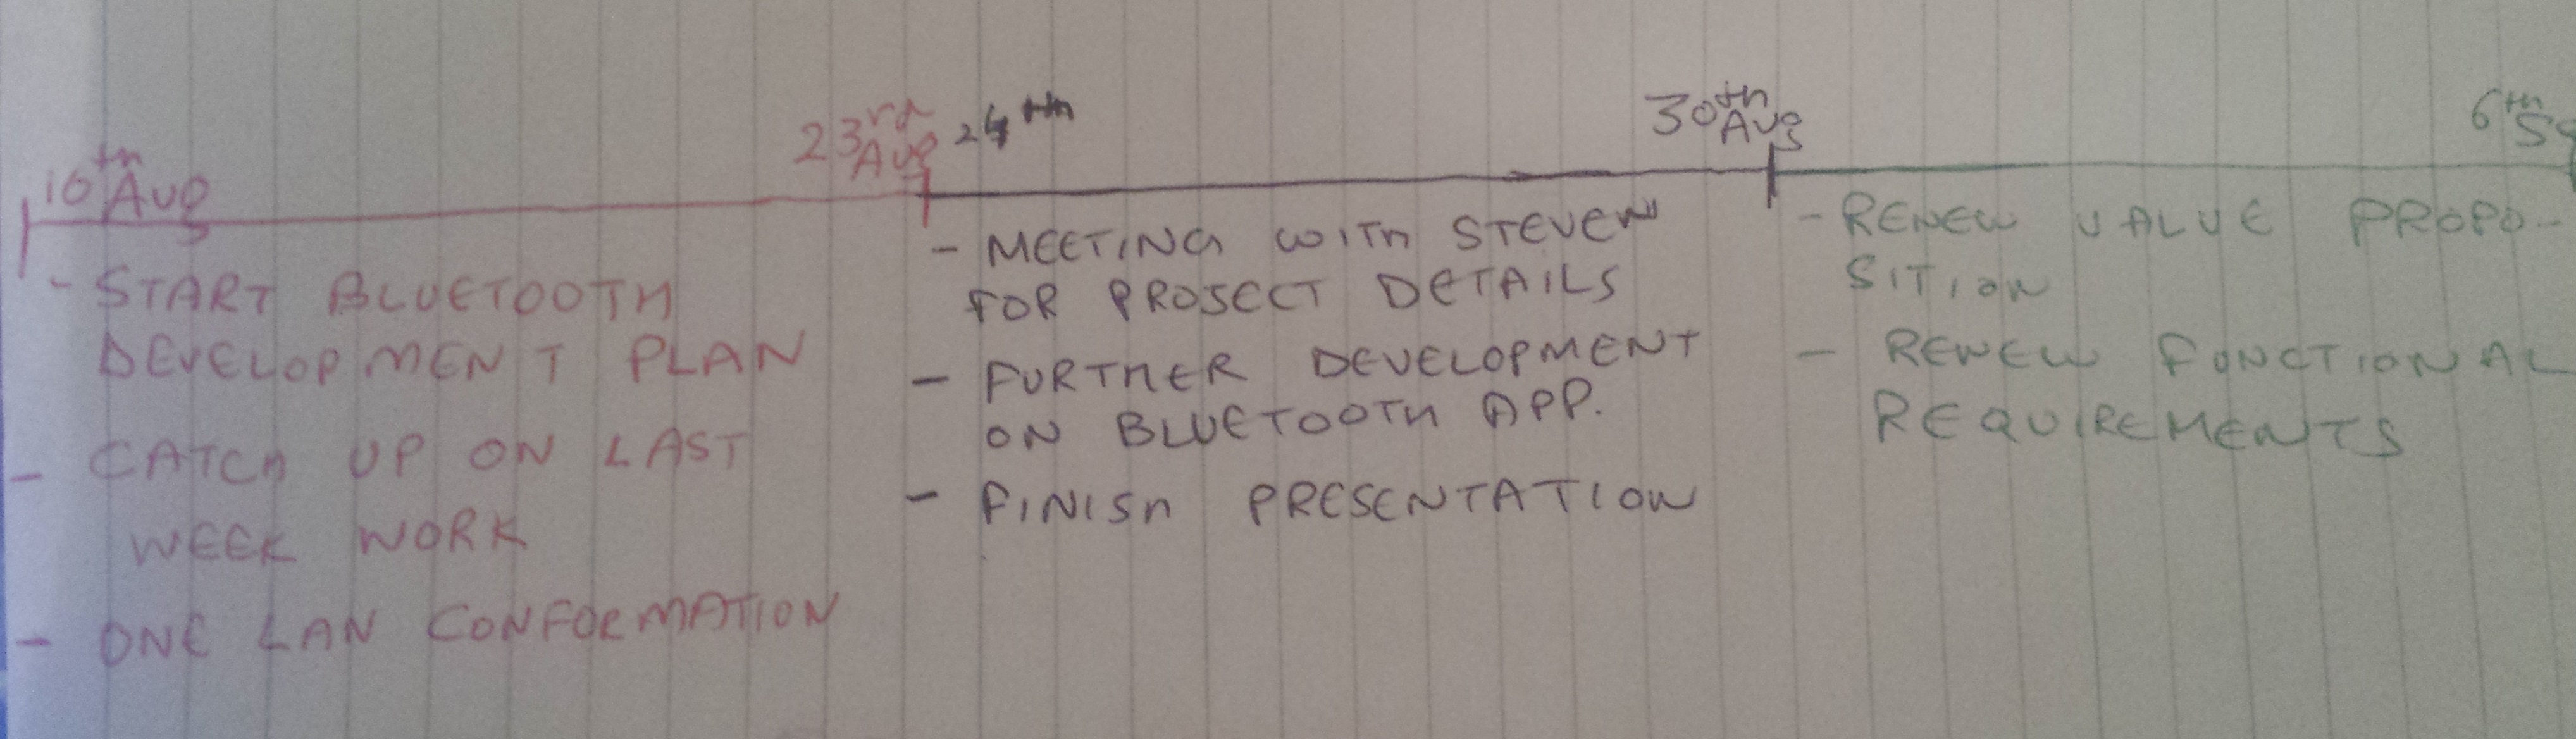 16th Aug
23rd Aug
24th
30th Aug
6th
- START BLUETOOTH
DEVELOPMENT PLAN
- CATCH UP ON LAST
WEEK WORK
- ONE LAN CONFORMATION
- MEETING WITH STEVEN
FOR PROJECT DETAILS
- FURTHER DEVELOPMENT
ON BLUETOOTH APP.
- FINISH PRESENTATION
- RENEW VALUE PROPO-
SITION
- RENEW FUNCTIONAL
REQUIREMENTS